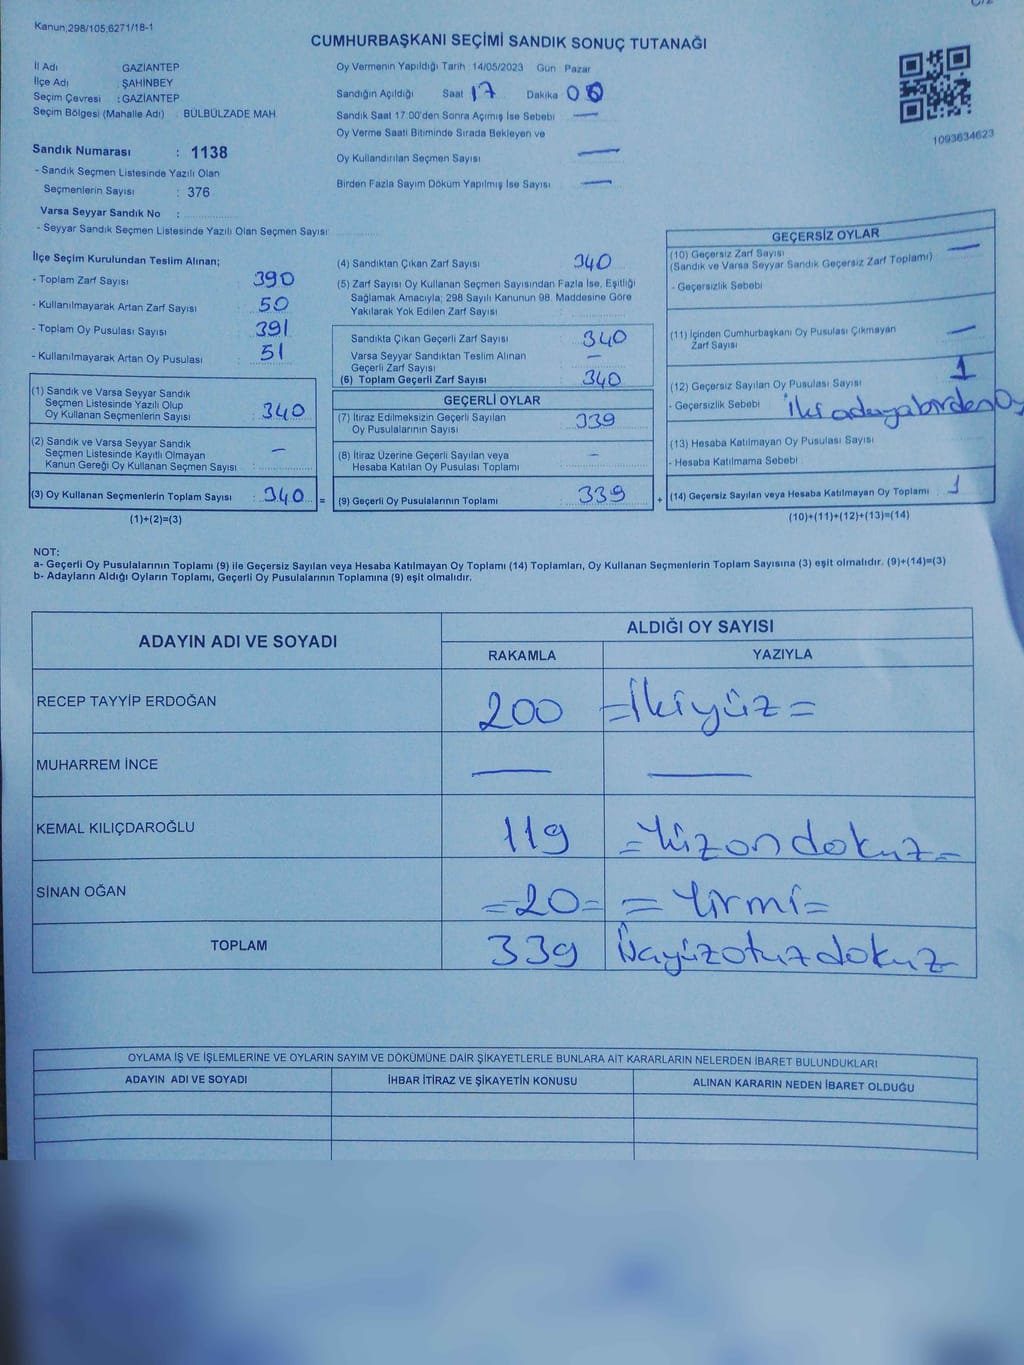 Kanun;298/105;6271/18-1
CUMHURBAŞKANI SEÇİMİ SANDIK SONUÇ TUTANAĞI
İl Adı GAZİANTEP
İlçe Adı : ŞAHİNBEY
Seçim Çevresi : GAZİANTEP
Seçim Bölgesi (Mahalle Adı) BÜLBÜLZADE MAH.
Sandık Numarası : 1138
- Sandık Seçmen Listesinde Yazılı Olan
Seçmenlerin Sayısı : 376
Varsa Seyyar Sandık No :
- Seyyar Sandık Seçmen Listesinde Yazılı Olan Seçmen Sayısı
Oy Vermenin Yapıldığı Tarih : 14/05/2023 Gün Pazar
Sandığın Açıldığı Saat 17 Dakika 00
Sandık Saat 17:00'den Sonra Açmış İse Sebebi —
Oy Verme Saati Bitiminde Sırada Bekleyen ve
Oy Kullandırılan Seçmen Sayısı —
Birden Fazla Sayım Döküm Yapılmış İse Sayısı —
1093634623
İlçe Seçim Kurulundan Teslim Alınan;
- Toplam Zarf Sayısı 390
- Kullanılmayarak Artan Zarf Sayısı 50
- Toplam Oy Pusulası Sayısı 391
- Kullanılmayarak Artan Oy Pusulası 51
(1) Sandık ve Varsa Seyyar Sandık
Seçmen Listesinde Yazılı Olup
Oy Kullanan Seçmenlerin Sayısı : 340
(2) Sandık ve Varsa Seyyar Sandık
Seçmen Listesinde Kayıtlı Olmayan
Kanun Gereği Oy Kullanan Seçmen Sayısı : —
(3) Oy Kullanan Seçmenlerin Toplam Sayısı : 340 =
(1)+(2)=(3)
(4) Sandıktan Çıkan Zarf Sayısı 340
(5) Zarf Sayısı Oy Kullanan Seçmen Sayısından Fazla İse, Eşitliği
Sağlamak Amacıyla; 298 Sayılı Kanunun 98. Maddesine Göre
Yakılarak Yok Edilen Zarf Sayısı
Sandıkta Çıkan Geçerli Zarf Sayısı 340
Varsa Seyyar Sandıktan Teslim Alınan
Geçerli Zarf Sayısı —
(6) Toplam Geçerli Zarf Sayısı 340
GEÇERLİ OYLAR
(7) İtiraz Edilmeksizin Geçerli Sayılan
Oy Pusulalarının Sayısı 339
(8) İtiraz Üzerine Geçerli Sayılan veya
Hesaba Katılan Oy Pusulası Toplamı —
(9) Geçerli Oy Pusulalarının Toplamı : 339 +
GEÇERSİZ OYLAR
(10) Geçersiz Zarf Sayısı —
(Sandık ve Varsa Seyyar Sandık Geçersiz Zarf Toplamı)
- Geçersizlik Sebebi
(11) İçinden Cumhurbaşkanı Oy Pusulası Çıkmayan —
Zarf Sayısı
(12) Geçersiz Sayılan Oy Pusulası Sayısı 1
- Geçersizlik Sebebi İki adaya birden Oy
(13) Hesaba Katılmayan Oy Pusulası Sayısı
- Hesaba Katılmama Sebebi
(14) Geçersiz Sayılan veya Hesaba Katılmayan Oy Toplamı : 1
(10)+(11)+(12)+(13)=(14)
NOT:
a- Geçerli Oy Pusulalarının Toplamı (9) ile Geçersiz Sayılan veya Hesaba Katılmayan Oy Toplamı (14) Toplamları, Oy Kullanan Seçmenlerin Toplam Sayısına (3) eşit olmalıdır. (9)+(14)=(3)
b- Adayların Aldığı Oyların Toplamı, Geçerli Oy Pusulalarının Toplamına (9) eşit olmalıdır.
ADAYIN ADI VE SOYADI
ALDIĞI OY SAYISI
RAKAMLA YAZIYLA
RECEP TAYYİP ERDOĞAN 200 =İkiyüz=
MUHARREM İNCE — —
KEMAL KILIÇDAROĞLU 119 =Yüzondokuz=
SİNAN OĞAN =20= =Yirmi=
TOPLAM 339 Üçyüzotuzdokuz
OYLAMA İŞ VE İŞLEMLERİNE VE OYLARIN SAYIM VE DÖKÜMÜNE DAİR ŞİKAYETLERLE BUNLARA AİT KARARLARIN NELERDEN İBARET BULUNDUKLARI
ADAYIN ADI VE SOYADI İHBAR İTİRAZ VE ŞİKAYETİN KONUSU ALINAN KARARIN NEDEN İBARET OLDUĞU